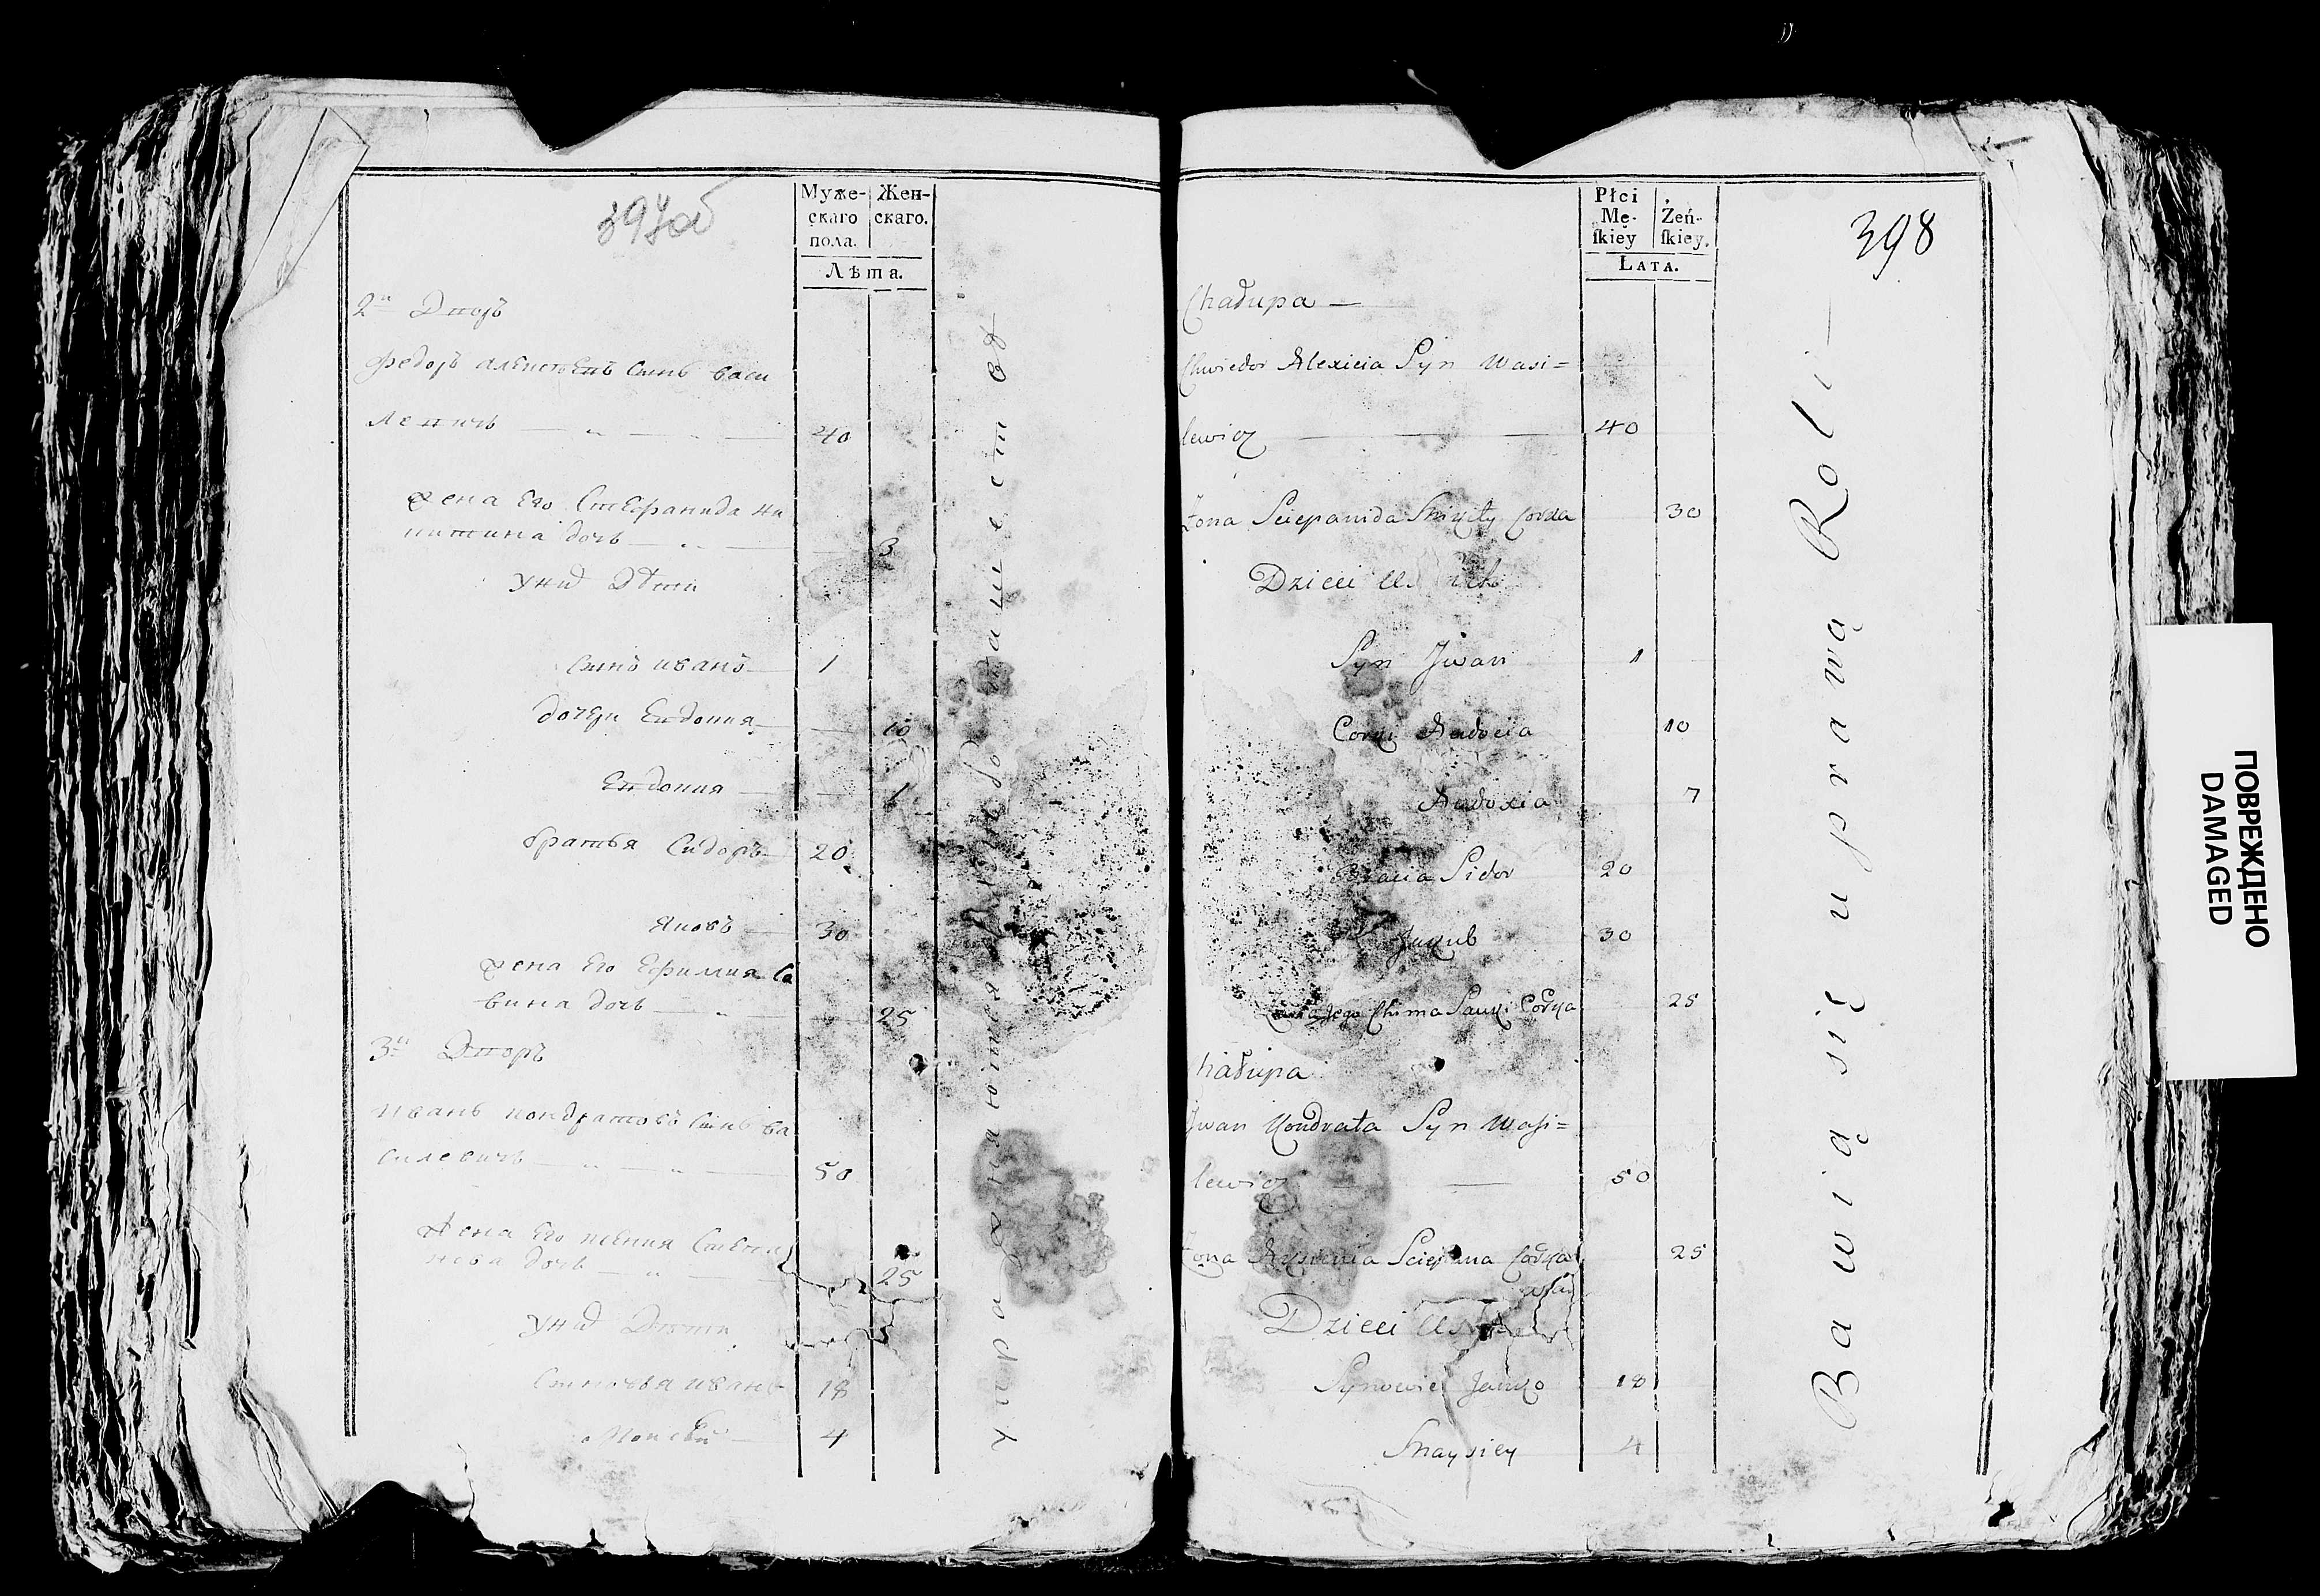 397об
Муже-
скаго
пола.
Жен-
скаго.
Лѣта.
2й Дворъ
Федоръ алексѣевъ синъ васи
левичъ 40
жена Его Стефанида ни
китина дочь 3
У них Дѣти
синъ иванъ 1
дочери Евдокия 10
Евдокия
братья Сидоръ 20
Яковъ 30
жена Его Ефимия Са
вина дочь 25
3й Дворъ
иванъ кондратовъ синъ ва
силевичъ 50
жена Его ксения Степа
нова дочь 25
У них Дѣти
Синовья иванъ 18
Моисѣй 4
398
Płci
Mę-
ſkiey
Żeń-
ſkiey.
Lata.
Chałupa —
Chwiedor Alexieia Syn Wasi=
lewicz 40
Żona Sciepanida Corka 30
Dzieci
Syn Jwan 1
Corki Audocia 10
Audoxia 7
Bracia Sidor 20
Jakub 30
Jego Chima Sawki Corka 25
hałupa
Jwan Kondrata Syn Wasi=
lewicz 50
Żona Sciepana Corka 25
Dzieci
Synowie Janko 18
Maysiey 4
Bawią się uprawą Roli —
ПОВРЕЖДЕНО
DAMAGED